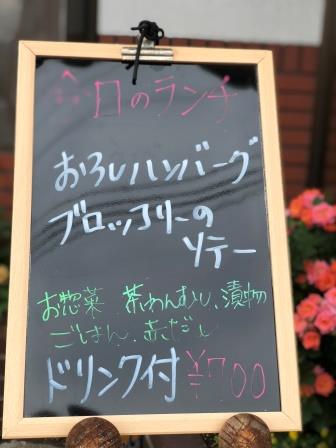 今日のランチ
おろしハンバーグ
ブロッコリーの
ソテー
お惣菜 茶わんむし、漬物
ごはん、赤だし
ドリンク付 ¥700